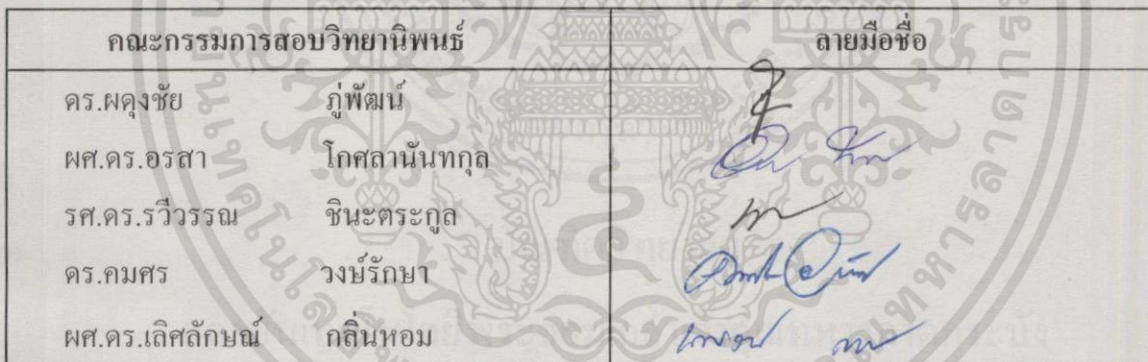 คณะกรรมการสอบวิทยานิพนธ์ ลายมือชื่อ
ดร.ผดุงชัย ภู่พัฒน์
ผศ.ดร.อรสา โกศลานันทกุล
รศ.ดร.รวีวรรณ ชินะตระกูล
ดร.คมศร วงษ์รักษา
ผศ.ดร.เลิศลักษณ์ กลิ่นหอม